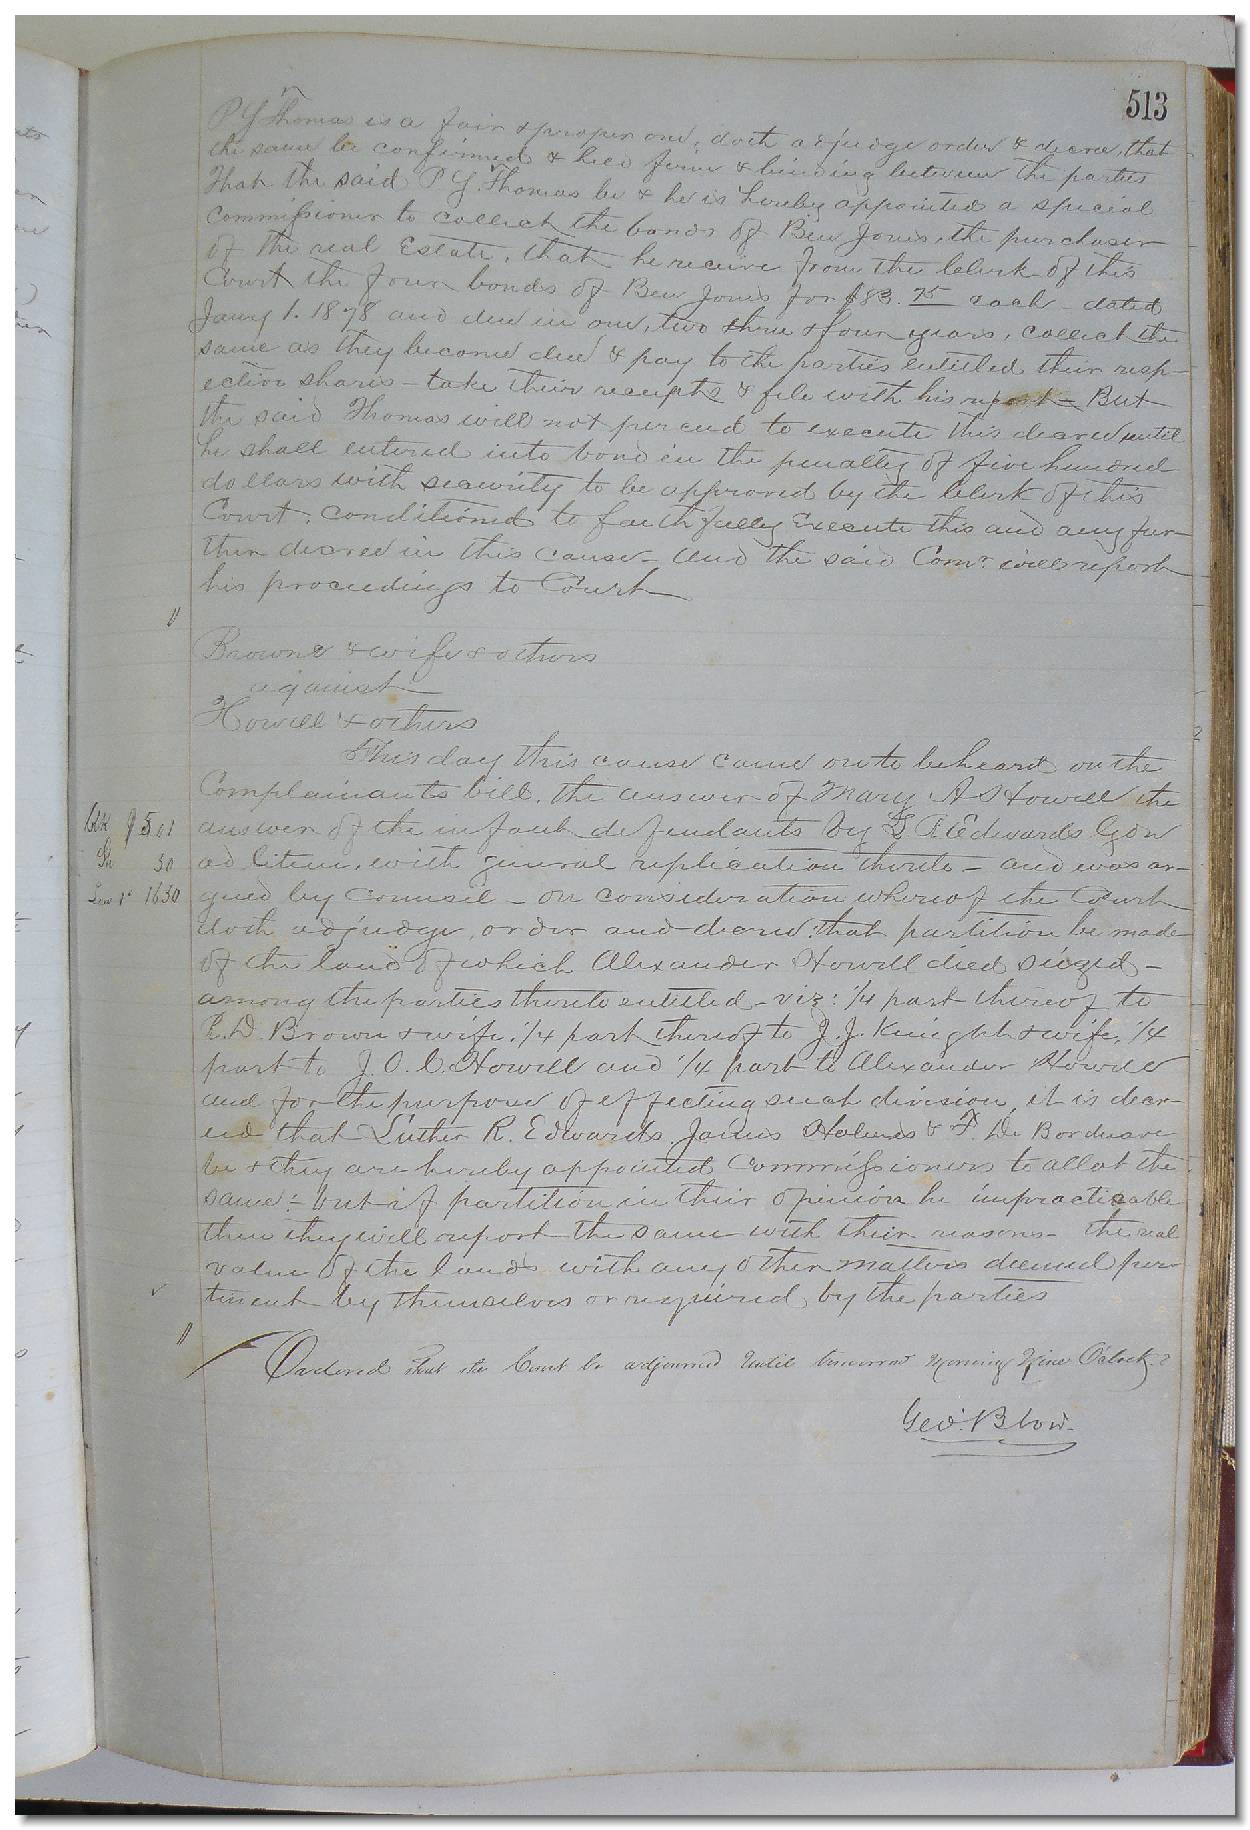 513
P Y Thomas is a fair & proper one, doth adjudge order & decree, that
the same be confirmed & held firm & binding between the parties
That the said P Y. Thomas be & he is hereby appointed a special
Commissioner to collect the bonds of Ben Jones, the purchaser
of the real Estate, that he receive from the Clerk of this
Court the four bonds of Ben Jones for $83.75 each dated
Jany 1. 1878 and due in one, two three & four years, collect the
same as they become due & pay to the parties entitled their resp-
ective shares - take their receipts & file with his report - But
the said Thomas will not proceed to execute this decree until
he shall entered into bond in the penalty of five hundred
dollars with security to be approved by the Clerk of this
Court, conditioned to faithfully Execute this and any fur-
ther decree in this cause - And the said Comr. will report
his proceedings to Court
Browne & wife & others
against
Howell & others
This day this cause came on to be heard on the
Complainants bill, the answer of Mary A Howell the
answer of the infant defendants by L R Edwards Gdn
ad litem, with general replication thereto - and was ar-
gued by Counsel - on consideration whereof the Court
doth adjudge, order and decree that partition be made
of the land of which Alexander Howell died seized -
among the parties thereto entitled - viz: 1/4 part thereof to
E. D. Brown & wife, 1/4 part thereof to J. J. Knight & wife, 1/4
part to J. O. C. Howell and 1/4 part to Alexander Howell
and for the purpose of effecting such division, it is decre-
ed that Luther R. Edwards, James Holmes & F. De Bordeave
be & they are hereby appointed Commissioners to allot the
same :- but if partition in their opinion be impracticable
then they will report the same with their reasons - the real
value of the lands with any other matters deemed per-
tinent by themselves or required by the parties
Ordered that the Court be adjourned Until tomorrow Morning Nine O'clock.
Geo. Blow.
5 01
30
1630